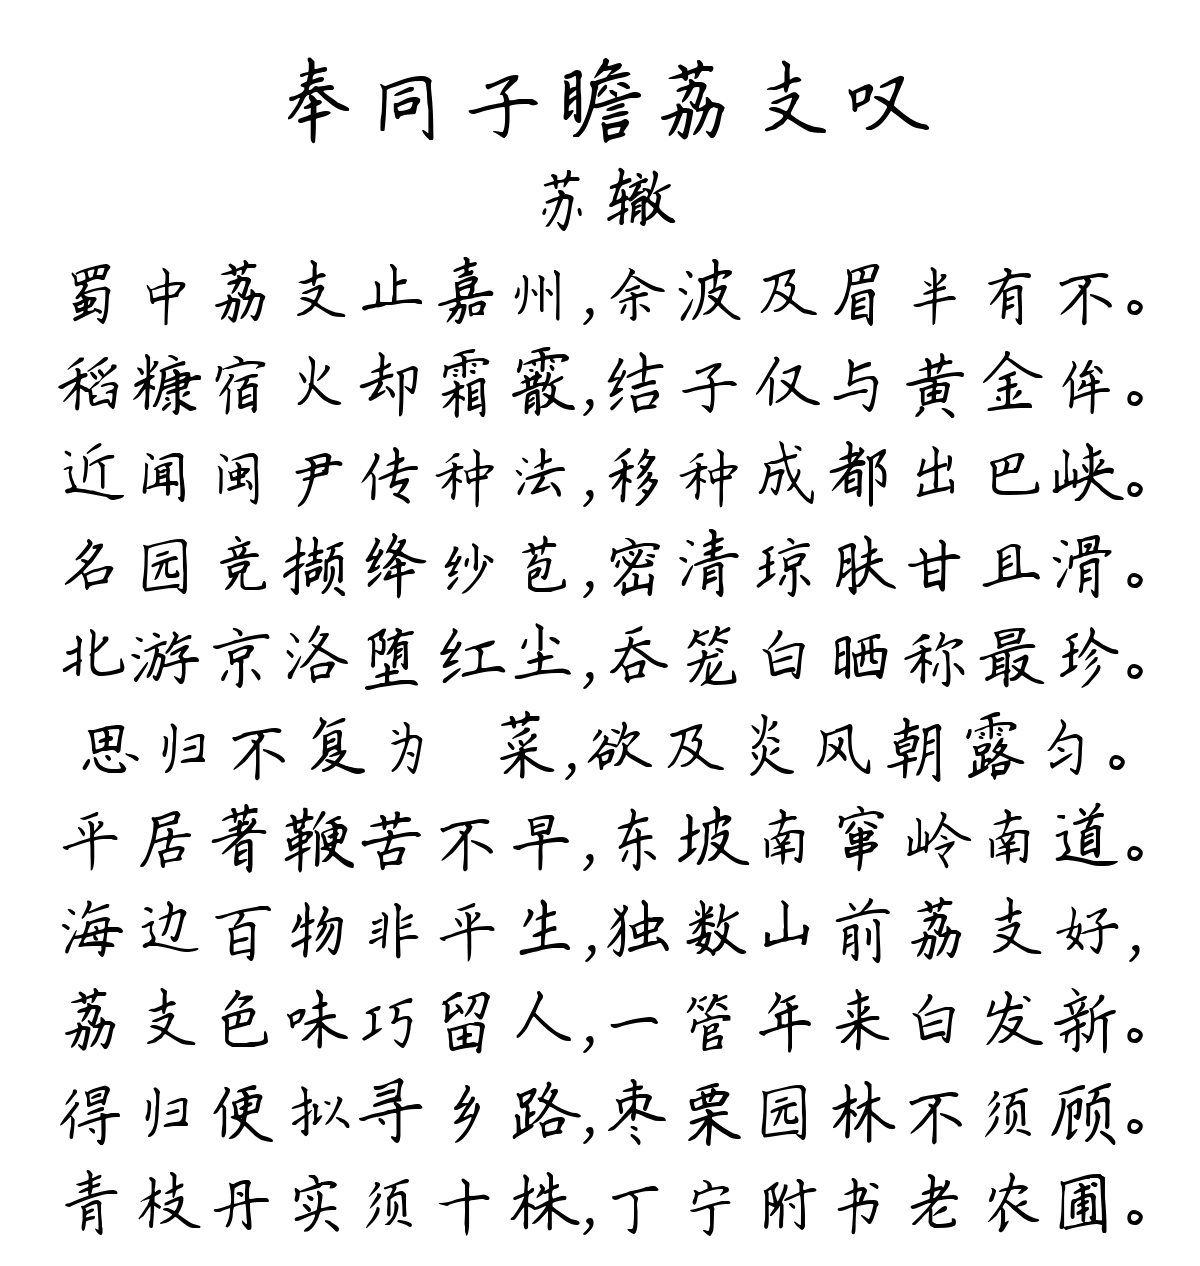 奉同子瞻荔支叹
苏辙
蜀中荔支止嘉州,余波及眉半有不。
稻糠宿火却霜霰,结子仅与黄金侔。
近闻闽尹传种法,移种成都出巴峡。
名园竞撷绛纱苞,密清琼肤甘且滑。
北游京洛堕红尘,吞笼白晒称最珍。
思归不复为 菜,欲及炎风朝露匀。
平居著鞭苦不早,东坡南窜岭南道。
海边百物非平生,独数山前荔支好,
荔支色味巧留人,一管年来白发新。
得归便拟寻乡路,枣栗园林不须顾。
青枝丹实须十株,丁宁附书老农圃。